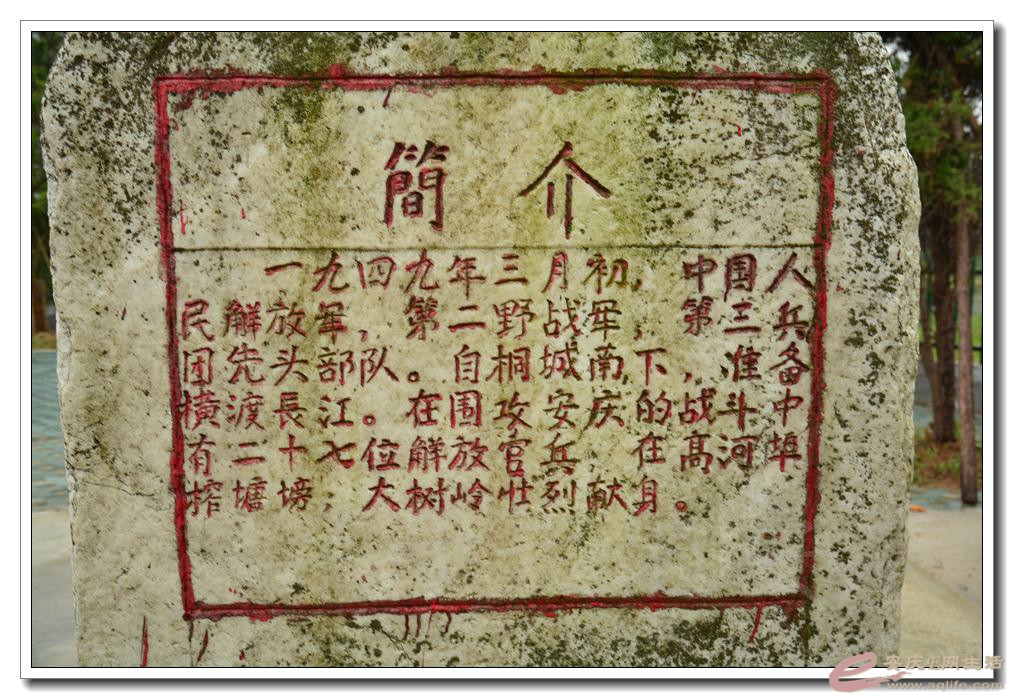 簡介
一九四九年三月初，中国人
民解放军，第二野战军，第三兵
团先头部队。自桐城南下，准备
横渡長江。在围攻安庆的战斗中
有二十七位解放官兵在高河埠
榨塘塝，大树岭壮烈献身。
www.aqlife.com